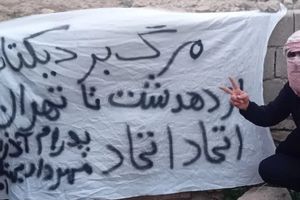 مرگ بر دیکتا
از دهدشت تا تهران
اتحاد اتحاد
پدرام آز
مهرداد